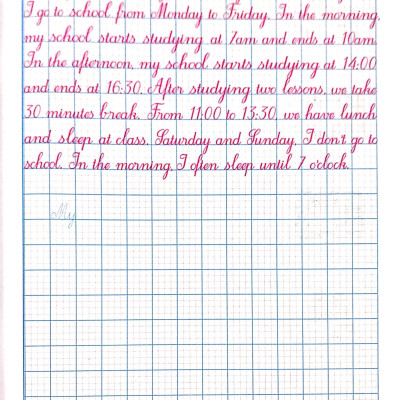 I go to school from Monday to Friday. In the morning,
my school starts studying at 7am and ends at 10am.
In the afternoon, my school starts studying at 14:00
and ends at 16:30. After studying two lessons, we take
30 minutes break. From 11:00 to 13:30, we have lunch
and sleep at class. Saturday and Sunday, I don't go to
school. In the morning, I often sleep until 7 o'clock.
My